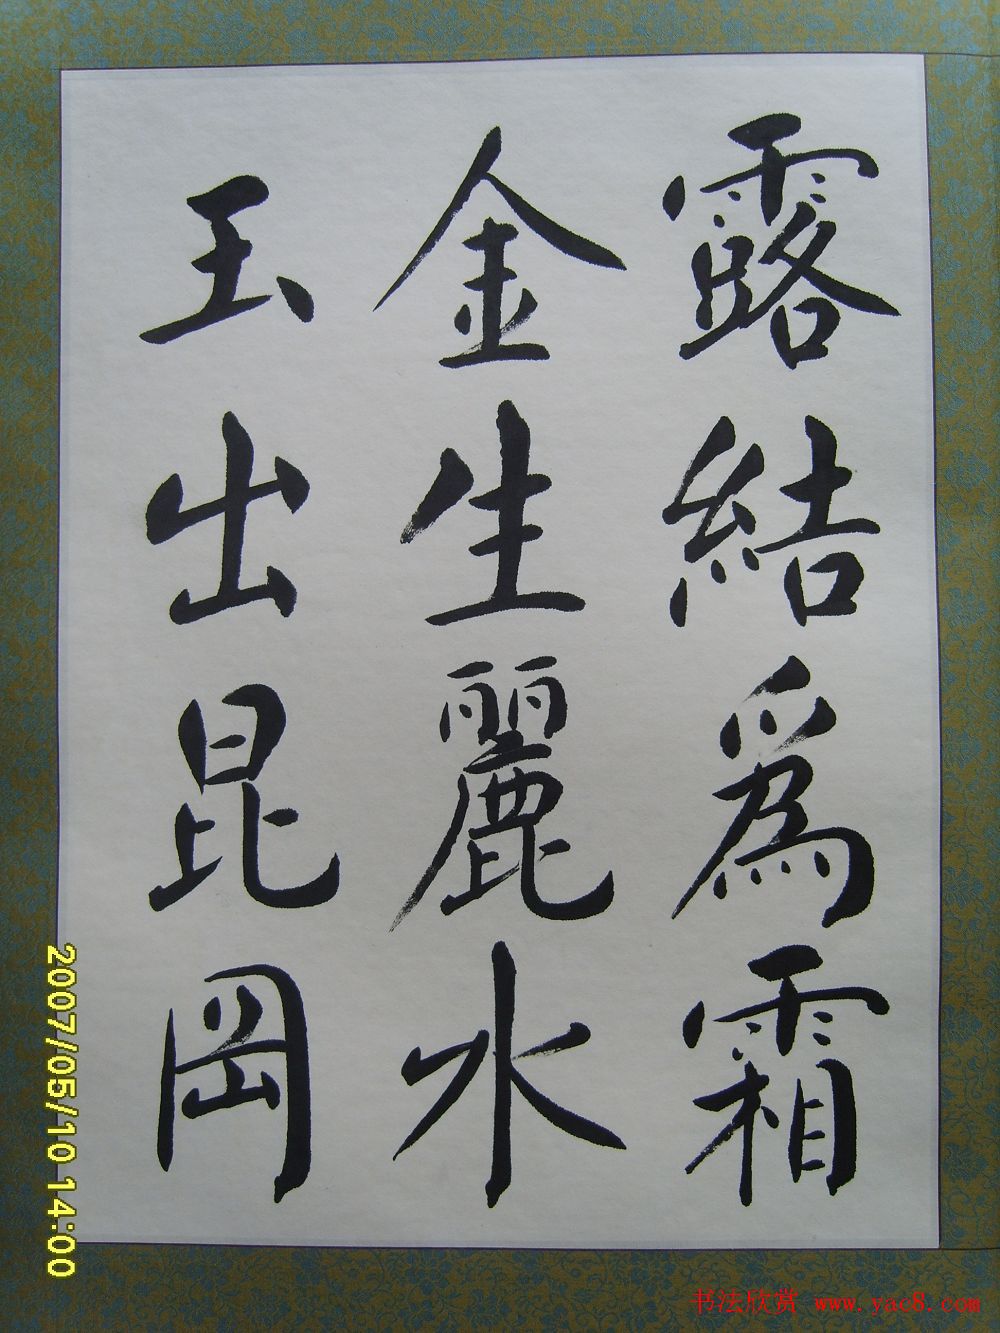 露結爲霜
金生麗水
玉出昆岡
2007/05/10 14:00
书法欣赏 www.yac8.com